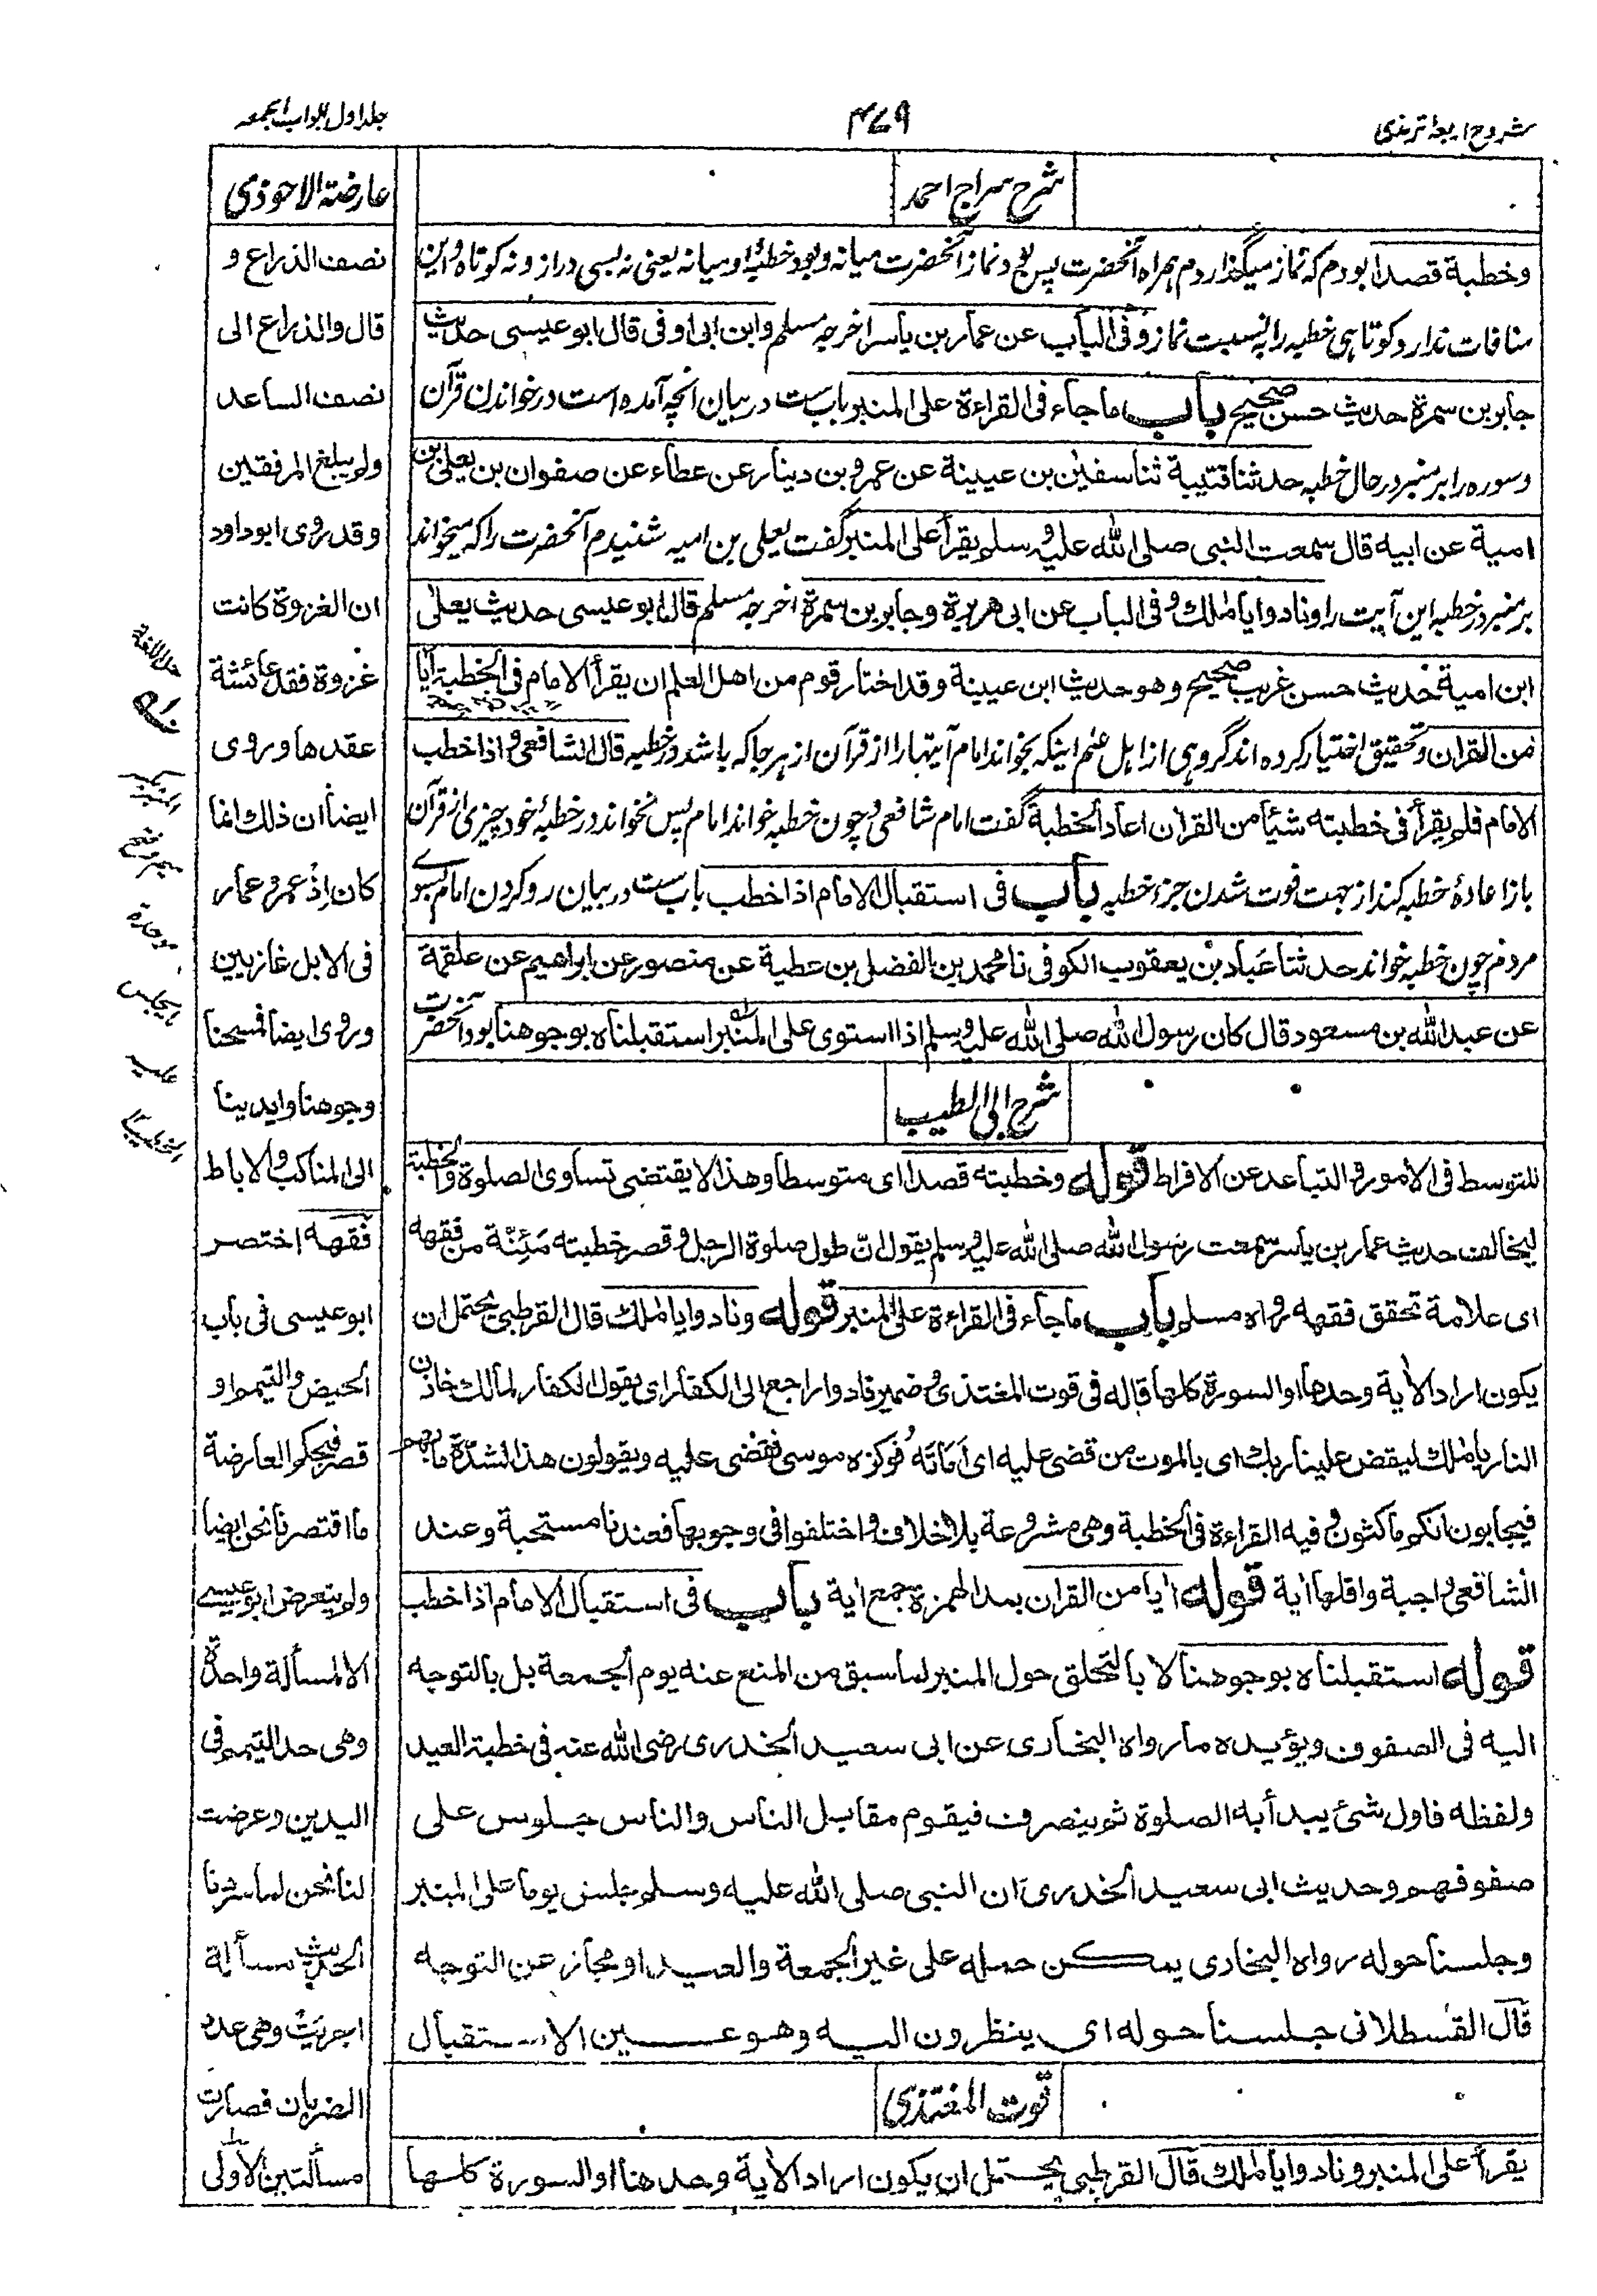 شروح اربعۀ ترمذی
۴۷۹
جلد اول ابواب الجمعه
شرح سراج احمد
وخطبة قصدا بودم که نماز میگذاردم همراه آنحضرت پس بود نماز آنحضرت میانه و بود خطبۀ او میانه یعنی نه بسی دراز و نه کوتاه و این
منافات ندارد کوتاهی خطبه را به نسبت نماز وفی الباب عن عمار بن یاسر اخرجه مسلم وابن ابی اوفی قال ابو عیسی حدیث
جابر بن سمرة حدیث حسن صحیح باب ما جاء فی القراءة علی المنبر باب ست در بیان آنچه آمده است در خواندن قرآن
وسوره را بر منبر در حال خطبه حدثنا قتیبة ثنا سفین بن عیینة عن عمرو بن دینار عن عطاء عن صفوان بن یعلی بن
امیة عن ابیه قال سمعت النبی صلی الله علیه وسلم یقرأ علی المنبر گفت یعلی بن امیه شنیدم آنحضرت را که میخواند
بر منبر در خطبه این آیت را ونادوا یا ملك وفی الباب عن ابی هریرة وجابر بن سمرة اخرجه مسلم قال ابو عیسی حدیث یعلی
ابن امیة حدیث حسن غریب صحیح وهو حدیث ابن عیینة وقد اختار قوم من اهل العلم ان یقرأ الامام فی الخطبة آیا
من القران وتحقیق اختیار کرده اند گروهی از اهل علم اینکه بخواند امام آیتها را از قرآن از هر جا که باشد در خطبه قال الشافعی واذا خطب
الامام فلم یقرأ فی خطبته شیئا من القران اعاد الخطبة گفت امام شافعی و چون خطبه خواند امام پس نخواند در خطبۀ خود چیزی از قرآن
باز اعادۀ خطبه کند از جهت فوت شدن جزء خطبه باب فی استقبال الامام اذا خطب باب ست در بیان رو کردن امام بسوے
مردم چون خطبه خواند حدثنا عباد بن یعقوب الکوفی نا محمد بن الفضل بن عطیة عن منصور عن ابراهیم عن علقمة
عن عبد الله بن مسعود قال کان رسول الله صلی الله علیه وسلم اذا استوی علی المنبر استقبلناه بوجوهنا بود آنحضرت
شرح ابی الطیب
للتوسط فی الامور والتباعد عن الافراط قوله وخطبته قصدا ای متوسطا وهذا لا یقتضی تساوی الصلوة والخطبة
لیخالف حدیث عمار بن یاسر سمعت رسول الله صلی الله علیه وسلم یقول ان طول صلوة الرجل وقصر خطبته مئنة من فقهه
ای علامة تحقق فقهه رواه مسلم باب ما جاء فی القراءة علی المنبر قوله ونادوا یا ملك قال القرطبی یحتمل ان
یکون اراد الآیة وحدها او السورة کلها قاله فی قوت المغتذی وضمیر نادوا راجع الی الکفار ای یقول الکفار لمالك خازن
النار یا ملك لیقض علینا ربك ای بالموت من قضی علیه ای اماته فوکزه موسی فقضی علیه ویقولون هذا لشدة ما بهم
فیجابون انکم ماکثون وفیه القراءة فی الخطبة وهی مشروعة بلا خلاف واختلفوا فی وجوبها فعندنا مستحبة وعند
الشافعی واجبة واقلها آیة قوله آیا من القران بمد الهمزة جمع آیة باب فی استقبال الامام اذا خطب
قوله استقبلناه بوجوهنا لا بالتحلق حول المنبر لما سبق من المنع عنه یوم الجمعة بل بالتوجه
الیه فی الصفوف ویؤیده ما رواه البخاری عن ابی سعید الخدری رضی الله عنه فی خطبة العید
ولفظه فاول شئ یبدأ به الصلوة ثم ینصرف فیقوم مقابل الناس والناس جلوس علی
صفوفهم وحدیث ابی سعید الخدری ان النبی صلی الله علیه وسلم جلس یوما علی المنبر
وجلسنا حوله رواه البخاری یمکن حمله علی غیر الجمعة والعید او مجاز عن التوجه
قال القسطلانی جلسنا حوله ای ینظرون الیه وهو عین الاستقبال
قوت المغتذی
یقرأ علی المنبر ونادوا یا ملك قال القرطبی یحتمل ان یکون اراد الآیة وحدها او السورة کلها
عارضة الاحوذی
نصف الذراع و
قال والذراع الی
نصف الساعد
ولم یبلغ المرفقین
وقد روی ابوداود
ان الغزوة کانت
غزوة فقد عائشة
عقدها وروی
ایضا ان ذلك انما
کان اذ عمر وعمار
فی الابل غازیین
وروی ایضا فمسحنا
وجوهنا وایدینا
الی المناکب والاباط
فقهه اختصر
ابو عیسی فی باب
الحیض والتیمم او
قصر فبحکم العارضة
ما اقتصرنا نحن ایضا
ولم یتعرض ابو عیسے
الا لمسألة واحدة
وهی حد التیمم فی
الیدین وعرضت
لنا نحن لما شرنا
الحدیث مسألة
اجریت وهی عدد
الضربان فصارت
مسألتین الاولی
حل اللغة
موحدة
علیه